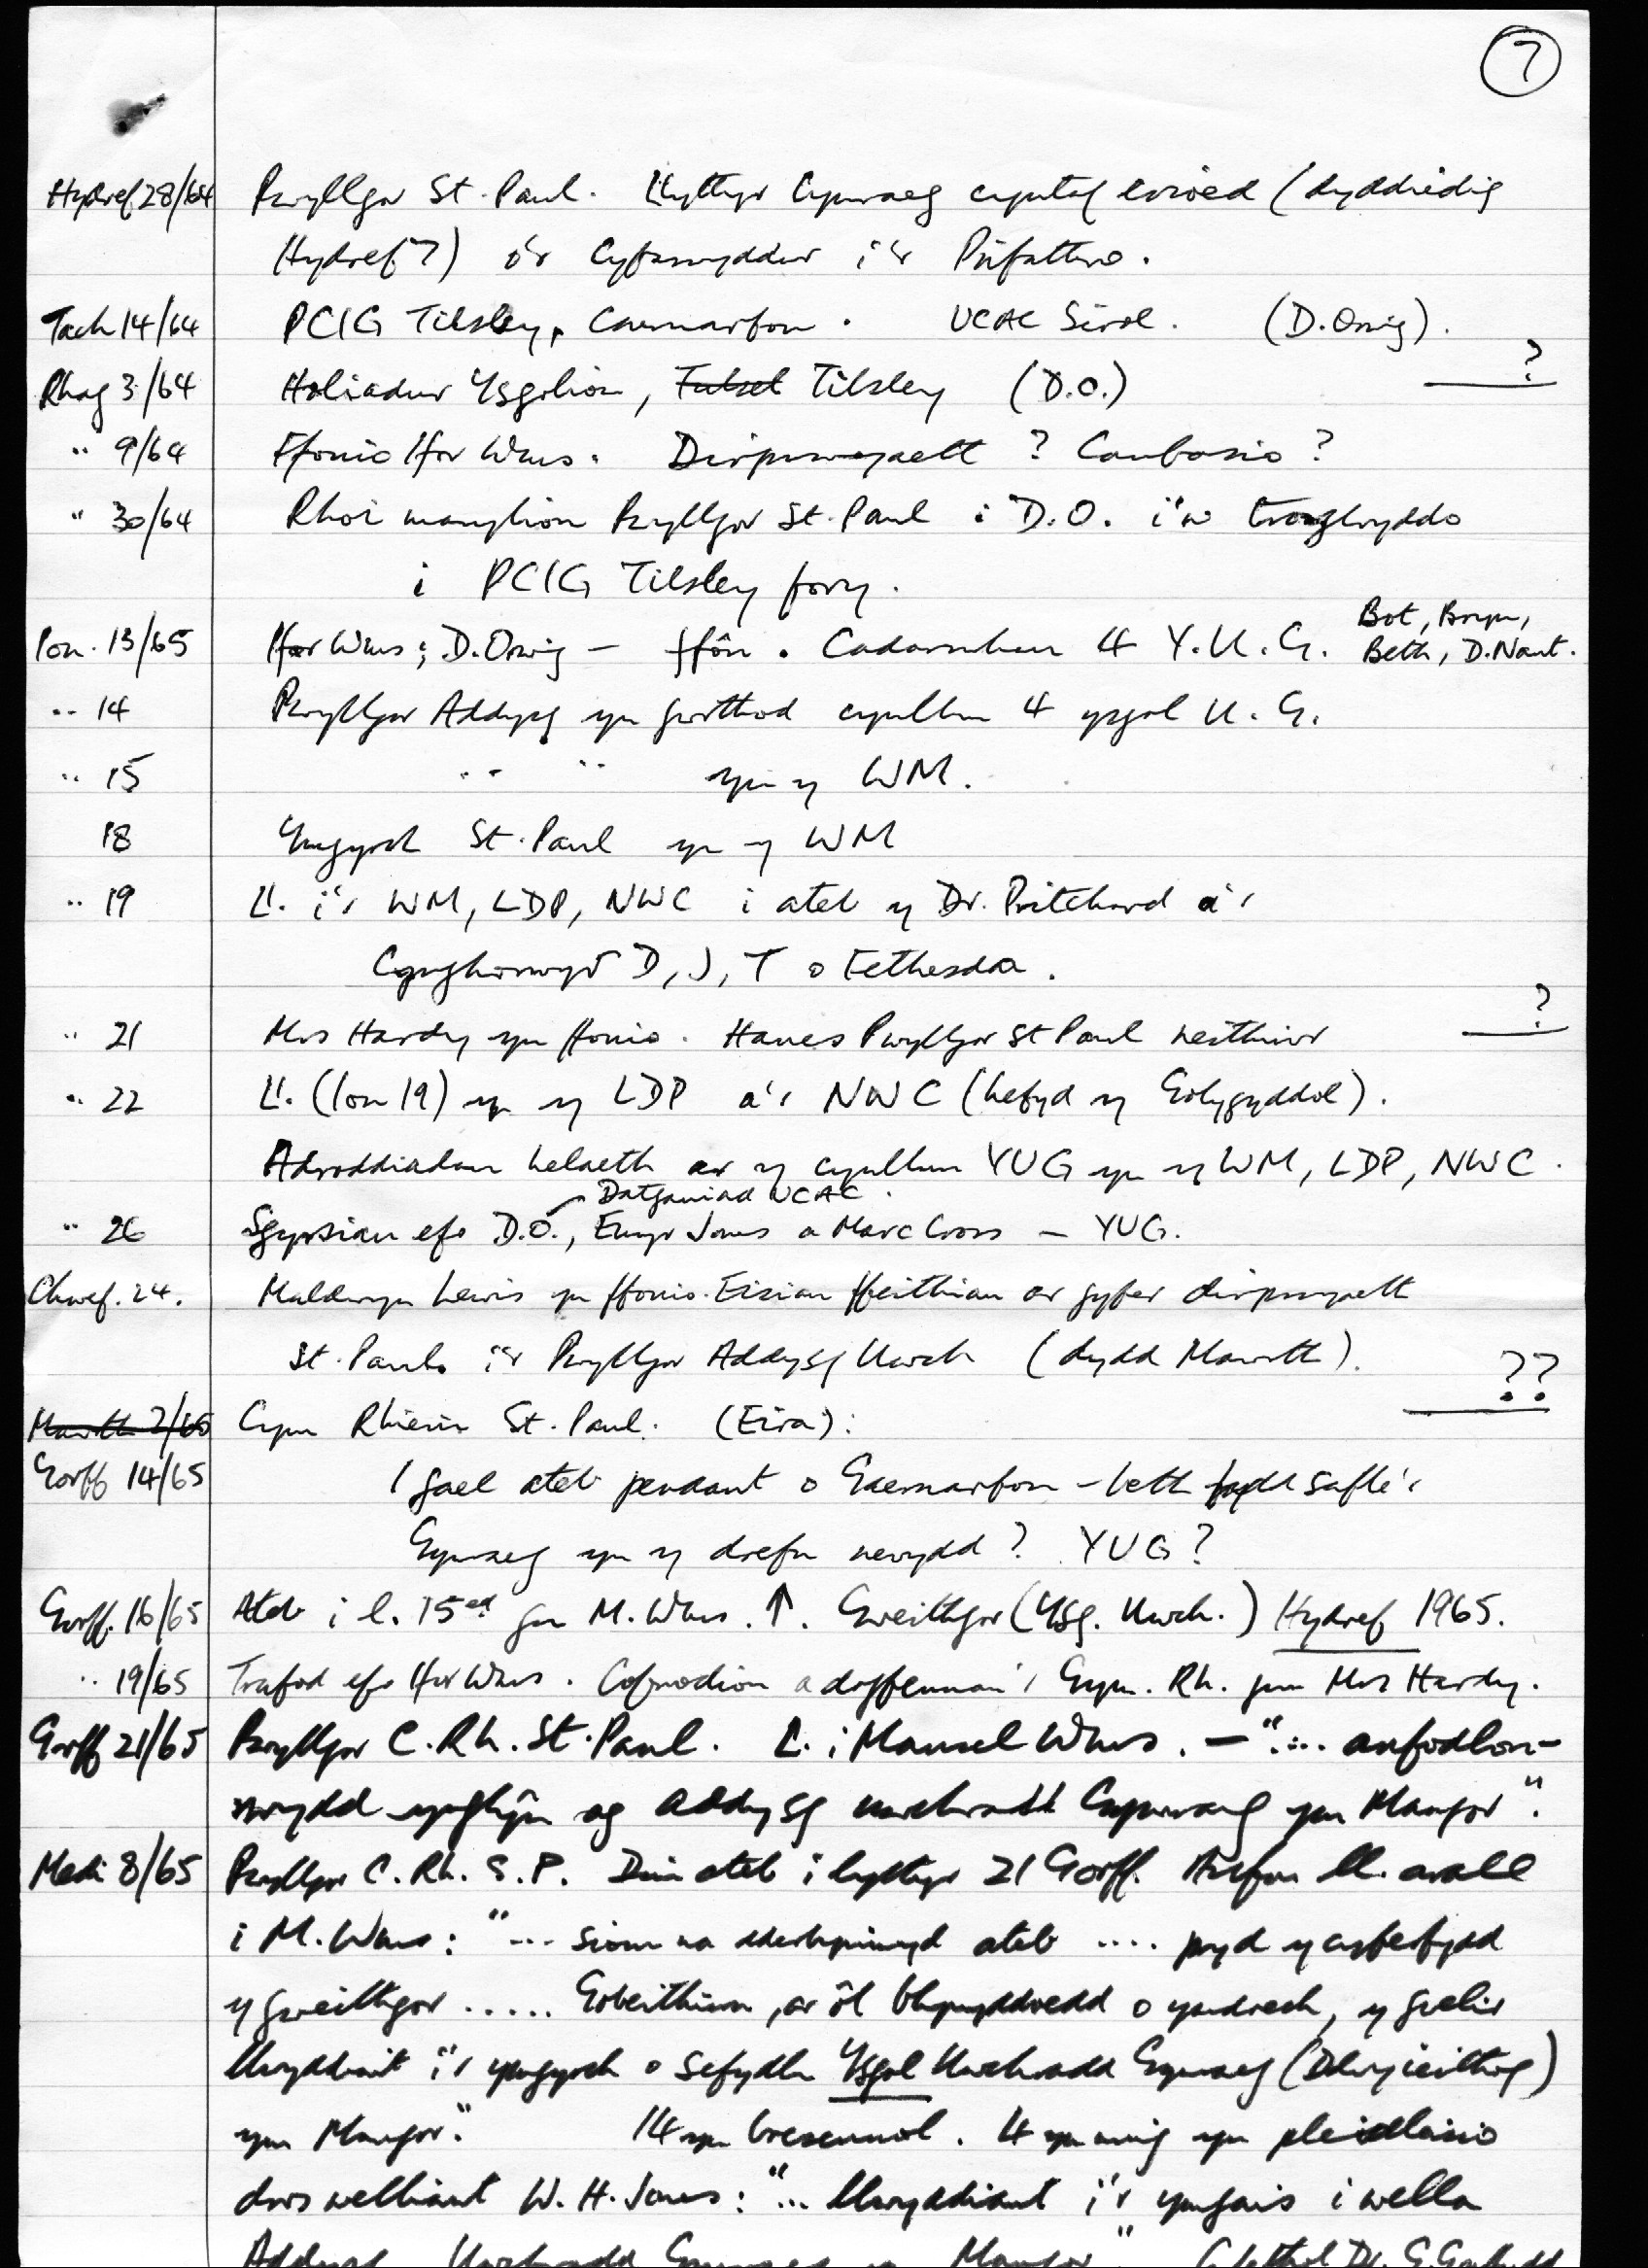 7
Hydref 28/64 Pwyllgor St. Paul. Llythyr Cymraeg cyntaf erioed (dyddiedig
Hydref 7) o'r Cyfarwyddwr i'r Prifathro.
Tach 14/64 PCIG Tilsley, Caernarfon. UCAC Sirol. (D. Orwig).
Rhag 3/64 Holiadur Ysgolion, Tilsley (D.O.) ?
" 9/64 Ffonio Ifor Wms. Dirprwyaeth? Canfasio?
" 30/64 Rhoi manylion Pwyllgor St. Paul i D.O. i'w trosglwyddo
i PCIG Tilsley fory.
Ion. 13/65 Ifor Wms; D. Orwig – ffôn. Cadarnhau 4 Y.U.G. Bot, Bryn,
Beth, D. Nant.
" 14 Pwyllgor Addysg yn gwrthod cynllun 4 ysgol U.G.
" 15 " " yn y WM.
18 Ymgyrch St. Paul yn y WM
" 19 Ll. i'r WM, LDP, NWC i ateb y Dr. Pritchard a'r
Cynghorwyr D, J, T o Fethesda.
" 21 Mrs Hardy yn ffonio. Hanes Pwyllgor St Paul neithiwr ?
" 22 Ll. (Ion 19) yn y LDP a'r NWC (hefyd y Golygyddol).
Adroddiadau helaeth ar y cynllun YUG yn y WM, LDP, NWC.
Datganiad UCAC.
" 26 Sgyrsian efo D.O., Emyr Jones a Marc Cross – YUG.
Chwef. 24. Maldwyn Lewis yn ffonio. Eisiau ffeithiau ar gyfer dirprwyaeth
St. Pauls i'r Pwyllgor Addysg Uwch (dydd Mawrth). ??
Mawrth 2/65 Cym Rhieni St. Paul. (Eira):
Gorff 14/65 I gael ateb pendant o Gaernarfon – beth fydd safle'r
Gymraeg yn y drefn newydd? YUG?
Gorff. 16/65 Ateb i l. 15ed gan M. Wms. ↑. Gweithgor (Ysg. Uwch.) Hydref 1965.
" 19/65 Trafod efo Ifor Wms. Cofnodion a dogfennau'r Gym. Rh. gan Mrs Hardy.
Gorff 21/65 Pwyllgor C. Rh. St. Paul. Ll. i Mansel Wms. – ".... anfodlon-
rwydd ynglŷn ag addysg uwchradd Cymraeg ym Mangor".
Medi 8/65 Pwyllgor C. Rh. S. P. Dim ateb i lythyr 21 Gorff. Anfon ll. arall
i M. Wms: "... siom na dderbyniwyd ateb .... pryd y cyferfydd
y gweithgor ..... Gobeithiwn, ar ôl blynyddoedd o ymdrech, y gwelir
llwyddiant i'r ymgyrch o sefydlu Ysgol Uwchradd Gymraeg (Ddwyieithog)
ym Mangor." 14 yn bresennol. 4 yn unig yn pleidleisio
dros welliant W. H. Jones: "... llwyddiant i'r ymgais i wella
Addysg Uwchradd Gymraeg ym Mangor"